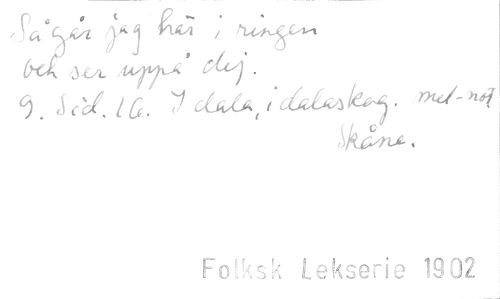 Så går jag här i ringen
och ser uppå dej.
9. Sid. 16. I dala, i dalaskog. mel-not.
Skåne.
Folksk Lekserie 1902